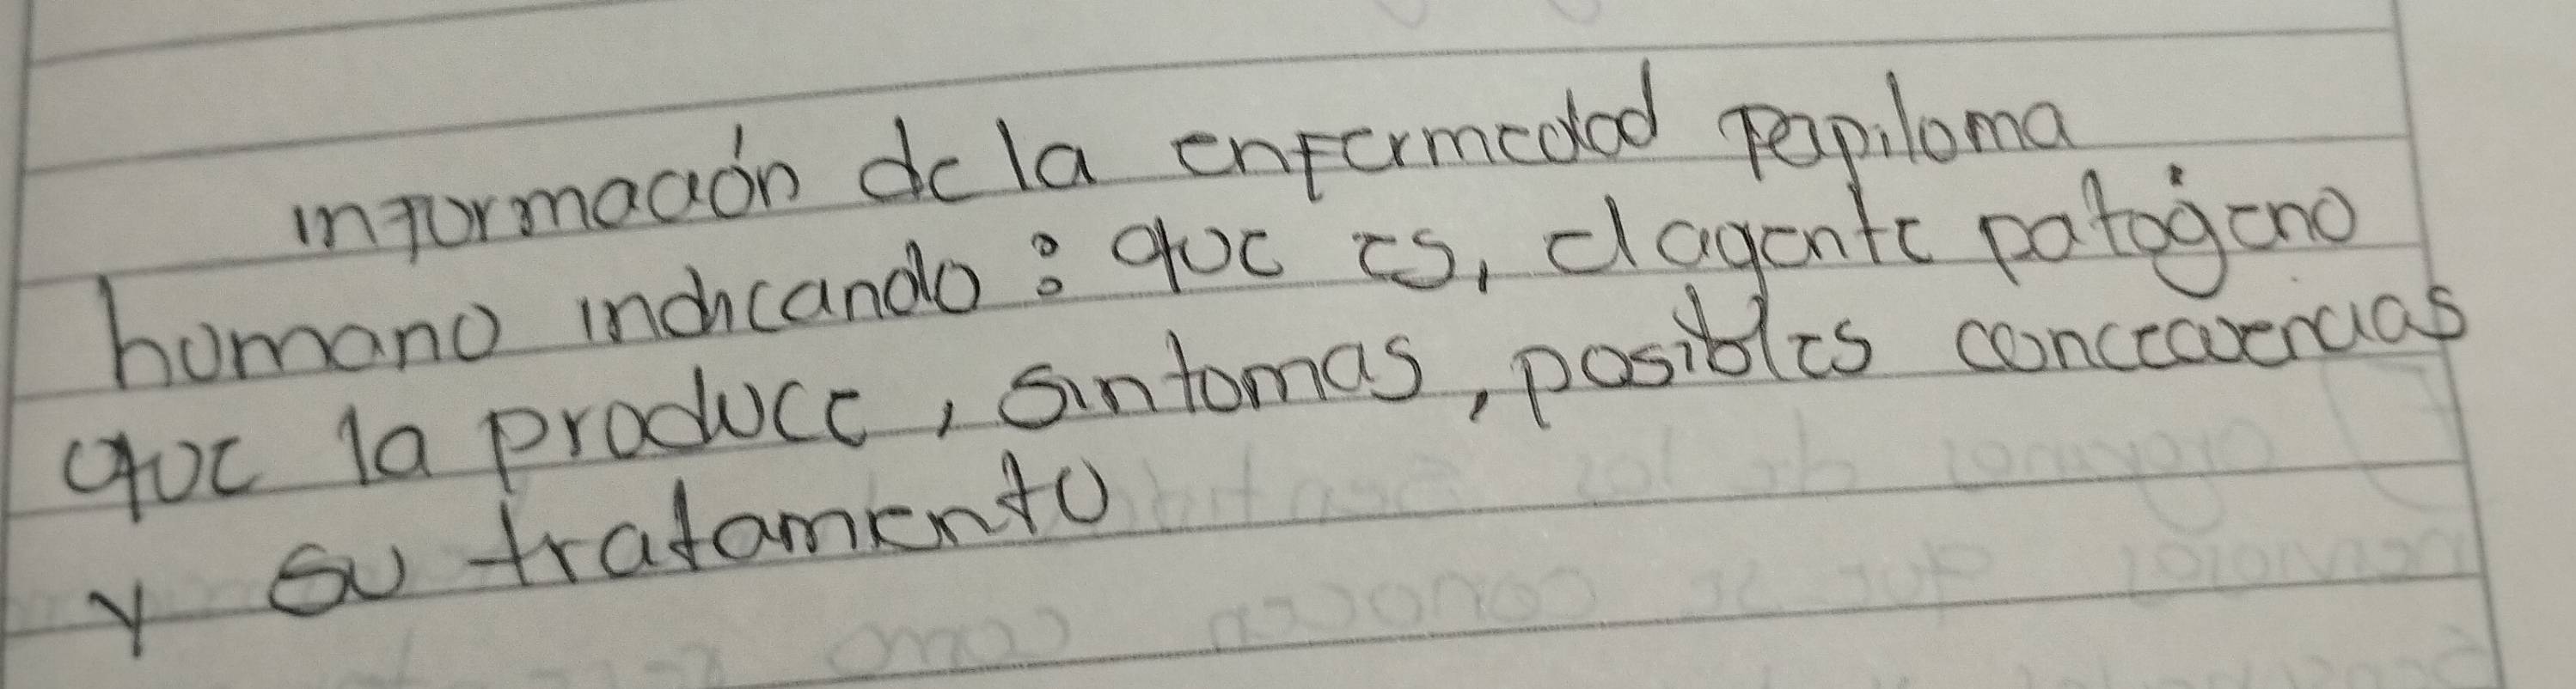 información de la enfermedad papiloma
humano indicando: que es, el agente patógeno
que la produce, sintomas, posibles concecuencias
y su tratamiento